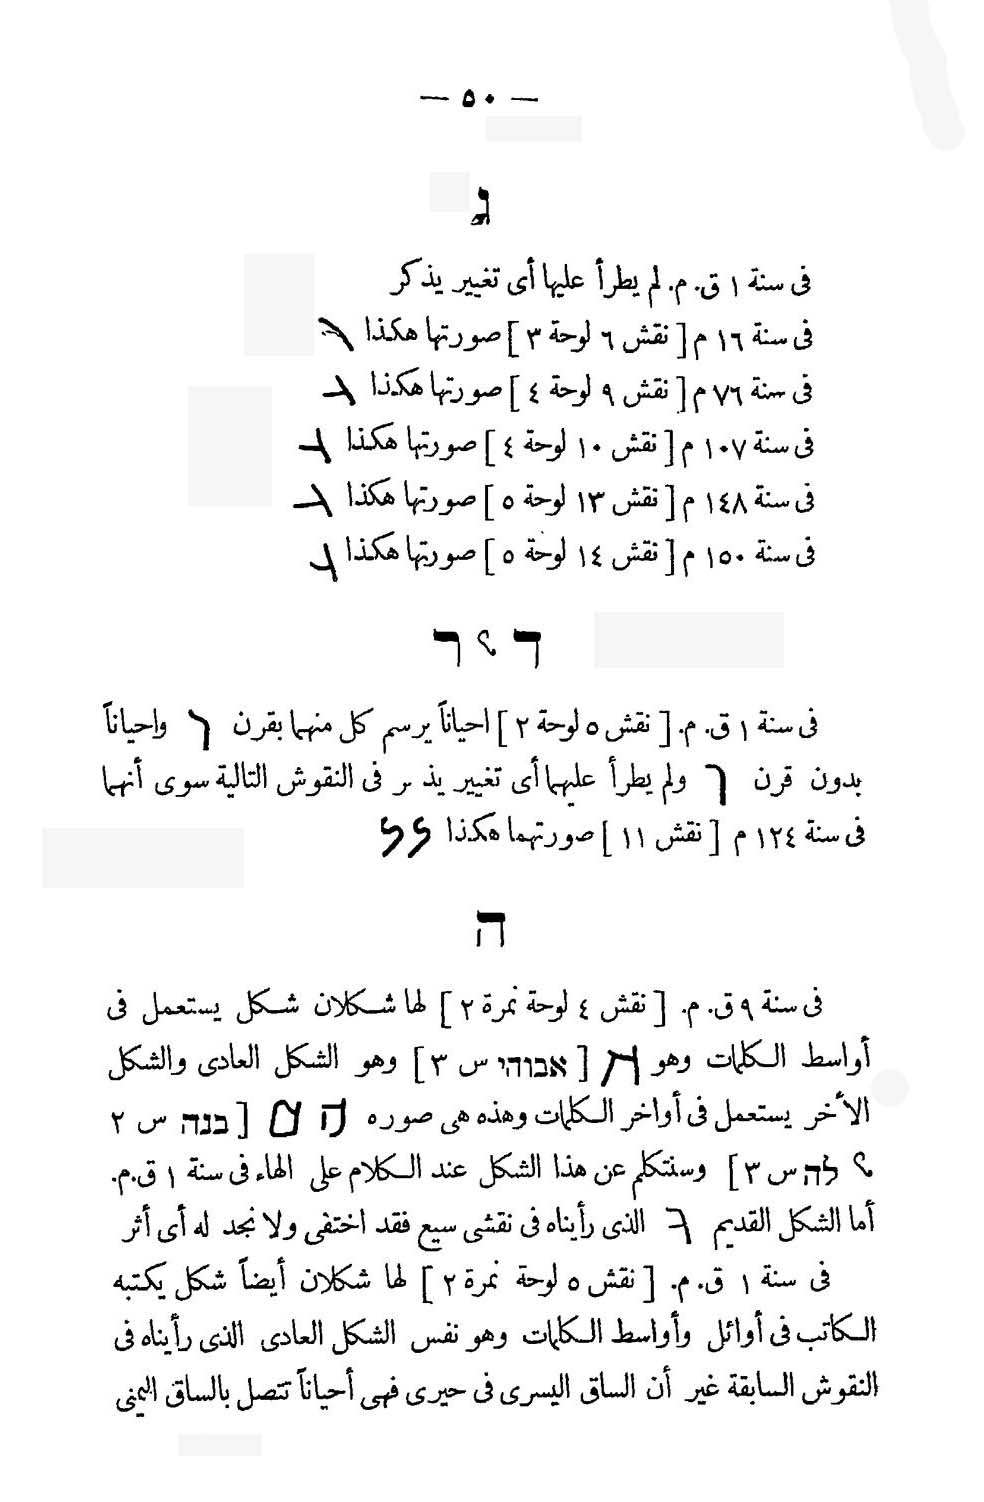 — ٥٠ —
ג
فى سنة ١ ق. م. لم يطرأ عليها أى تغيير يذكر
فى سنة ١٦ م [ نقش ٦ لوحة ٣ ] صورتها هكذا
فى سنة ٧٦ م [ نقش ٩ لوحة ٤ ] صورتها هكذا
فى سنة ١٠٧ م [ نقش ١٠ لوحة ٤ ] صورتها هكذا
فى سنة ١٤٨ م [ نقش ١٣ لوحة ٥ ] صورتها هكذا
فى سنة ١٥٠ م [ نقش ١٤ لوحة ٥ ] صورتها هكذا
ד و ר
فى سنة ١ ق. م. [ نقش ٥ لوحة ٢ ] احياناً يرسم كل منهما بقرن واحياناً
بدون قرن ولم يطرأ عليهما أى تغيير يذ ر فى النقوش التالية سوى أنهما
فى سنة ١٢٤ م [ نقش ١١ ] صورتهما هكذا
ה
فى سنة ٩ ق. م. [ نقش ٤ لوحة نمرة ٢ ] لها شكلان شكل يستعمل فى
أواسط الكلمات وهو [ אבוהי س ٣ ] وهو الشكل العادى والشكل
الأخر يستعمل فى أواخر الكلمات وهذه هى صوره [ בנה س ٢
و לה س ٣ ] وسنتكلم عن هذا الشكل عند الكلام على الهاء فى سنة ١ ق.م.
أما الشكل القديم الذى رأيناه فى نقشى سيع فقد اختفى ولا نجد له أى أثر
فى سنة ١ ق. م. [ نقش ٥ لوحة نمرة ٢ ] لها شكلان أيضاً شكل يكتبه
الكاتب فى أوائل وأواسط الكلمات وهو نفس الشكل العادى الذى رأيناه فى
النقوش السابقة غير أن الساق اليسرى فى حيرى فهى أحياناً تتصل بالساق اليمنى